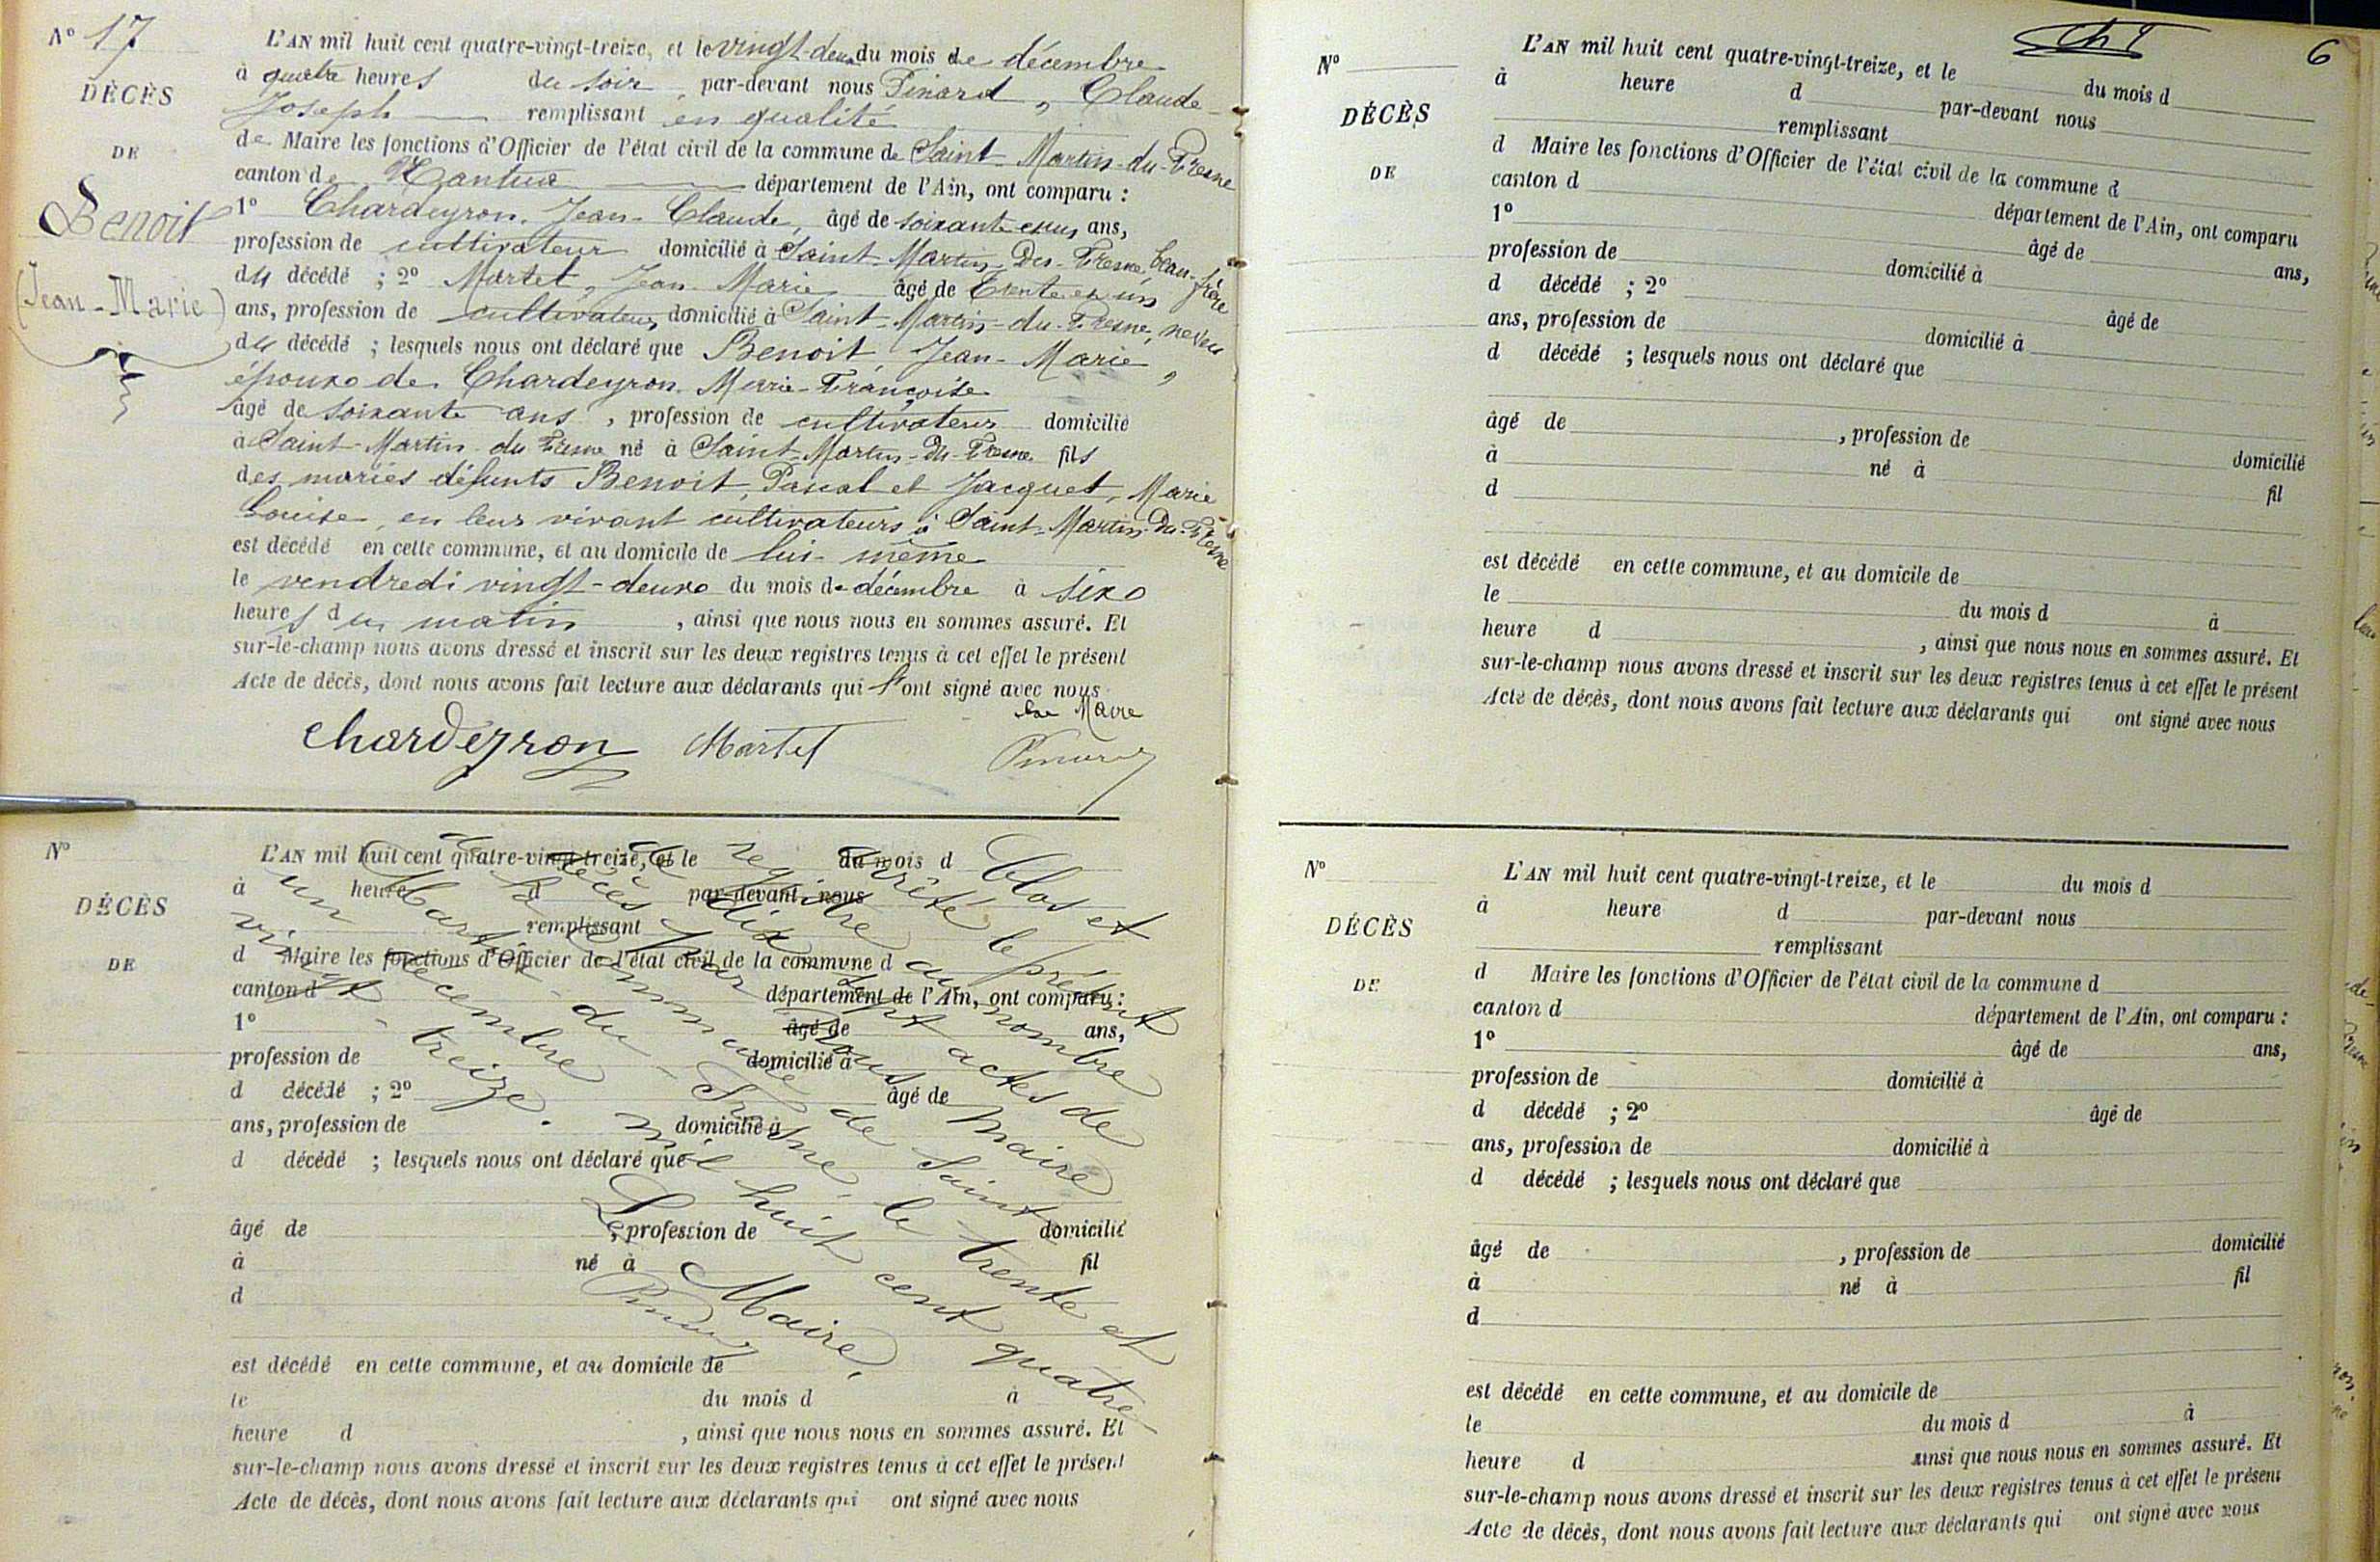 N° 17
DÉCÈS
DE
Benoit
(Jean-Marie)
L'AN mil huit cent quatre-vingt-treize, et le vingt-deux du mois de décembre
à quatre heures du soir, par-devant nous Pinard, Claude-
Joseph remplissant en qualité
de Maire les fonctions d'Officier de l'état civil de la commune de Saint-Martin-du-Fresne
canton de Nantua département de l'Ain, ont comparu :
1° Chardeyron, Jean-Claude, âgé de soixante ans,
profession de cultivateur domicilié à Saint-Martin-Du-Fresne, beau-frère
du décédé ; 2° Martel, Jean Marie âgé de trente et un
ans, profession de cultivateur, domicilié à Saint-Martin-du-Fresne, neveu
du décédé ; lesquels nous ont déclaré que Benoit, Jean-Marie,
époux de Chardeyron, Marie-Françoise
âgé de soixante ans, profession de cultivateur domicilié
à Saint-Martin du Fresne né à Saint-Martin-Du-Fresne fils
des mariés défunts Benoit, Pascal et Jacquet, Marie
Louise, en leur vivant cultivateurs à Saint-Martin-Du-Fresne
est décédé en cette commune, et au domicile de lui-même
le vendredi vingt-deux du mois de décembre à six
heures du matin, ainsi que nous nous en sommes assuré. Et
sur-le-champ nous avons dressé et inscrit sur les deux registres tenus à cet effet le présent
Acte de décès, dont nous avons fait lecture aux déclarants qui l'ont signé avec nous.
Le Maire
Chardeyron Martel Pinard
N°
DÉCÈS
DE
L'AN mil huit cent quatre-vingt-treize, et le du mois d
à heure d par-devant nous
remplissant
d Maire les fonctions d'Officier de l'état civil de la commune d
canton d département de l'Ain, ont comparu :
1° âgé de ans,
profession de domicilié à
d décédé ; 2° âgé de
ans, profession de domicilié à
d décédé ; lesquels nous ont déclaré que
âgé de , profession de domicilié
à né à fil
d
est décédé en cette commune, et au domicile de
le du mois d à
heure d , ainsi que nous nous en sommes assuré. Et
sur-le-champ nous avons dressé et inscrit sur les deux registres tenus à cet effet le présent
Acte de décès, dont nous avons fait lecture aux déclarants qui ont signé avec nous
Clos et
arrêté le présent
registre au nombre
de dix sept actes de
décès par nous Maire
de la commune de Saint
Martin-du-Fresne, le trente et
un décembre mil huit cent quatre-
vingt-treize.
Le Maire,
Pinard
6
N°
DÉCÈS
DE
L'AN mil huit cent quatre-vingt-treize, et le du mois d
à heure d par-devant nous
remplissant
d Maire les fonctions d'Officier de l'état civil de la commune d
canton d département de l'Ain, ont comparu
1° âgé de ans,
profession de domicilié à
d décédé ; 2° âgé de
ans, profession de domicilié à
d décédé ; lesquels nous ont déclaré que
âgé de , profession de domicilié
à né à fil
d
est décédé en cette commune, et au domicile de
le du mois d à
heure d , ainsi que nous nous en sommes assuré. Et
sur-le-champ nous avons dressé et inscrit sur les deux registres tenus à cet effet le présent
Acte de décès, dont nous avons fait lecture aux déclarants qui ont signé avec nous
N°
DÉCÈS
DE
L'AN mil huit cent quatre-vingt-treize, et le du mois d
à heure d par-devant nous
remplissant
d Maire les fonctions d'Officier de l'état civil de la commune d
canton d département de l'Ain, ont comparu :
1° âgé de ans,
profession de domicilié à
d décédé ; 2° âgé de
ans, profession de domicilié à
d décédé ; lesquels nous ont déclaré que
âgé de , profession de domicilié
à né à fil
d
est décédé en cette commune, et au domicile de
le du mois d à
heure d ainsi que nous nous en sommes assuré. Et
sur-le-champ nous avons dressé et inscrit sur les deux registres tenus à cet effet le présent
Acte de décès, dont nous avons fait lecture aux déclarants qui ont signé avec nous